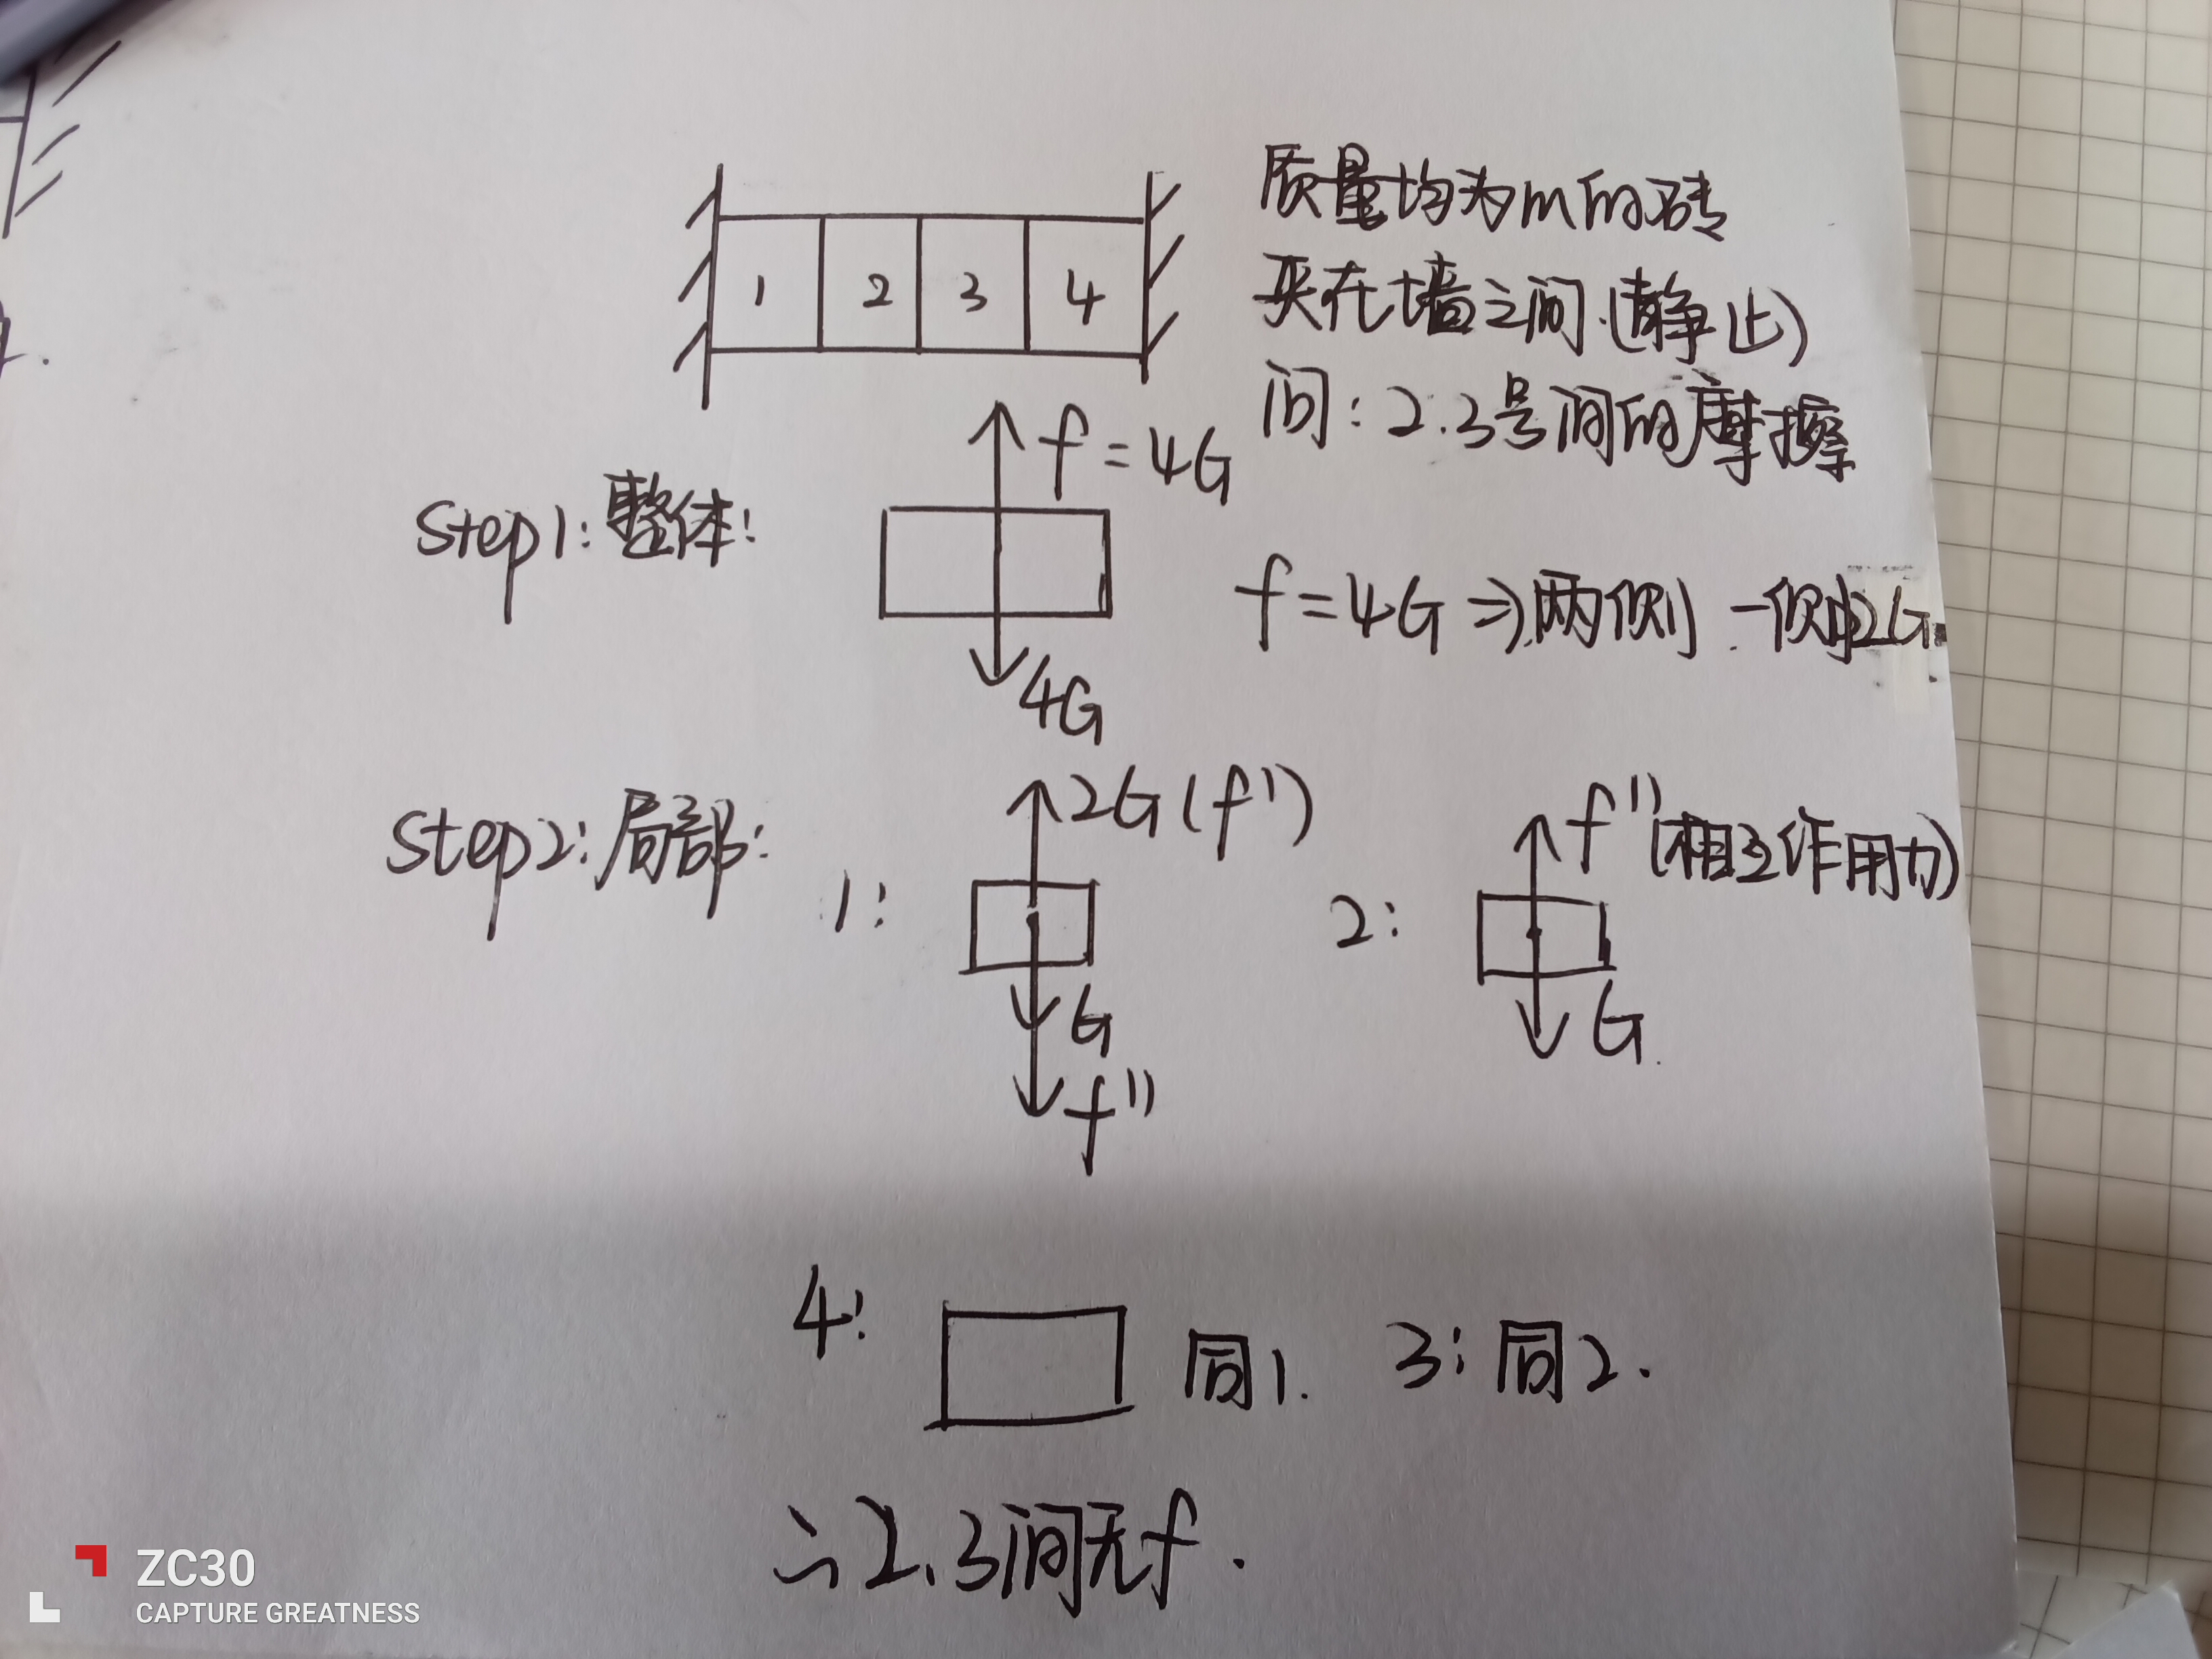 质量均为m的砖
夹在墙之间.(静止)
问:2.3号间的摩擦
1 2 3 4
Step1:整体:
f=4G
4G
f=4G⇒两侧 一侧2G
Step2:局部:
1:
2G(f')
G
f''
2:
f''(相互作用力)
G
4:
同1.
3:同2.
∴2、3间无f.
ZC30
CAPTURE GREATNESS